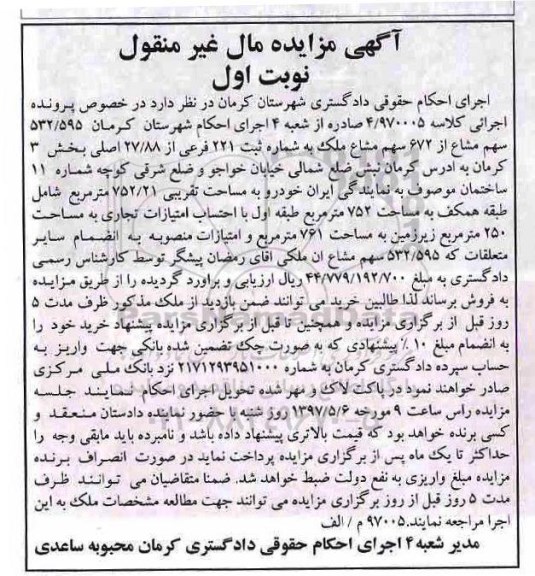 آگهی مزایده مال غیر منقول
نوبت اول
اجرای احکام حقوقی دادگستری شهرستان کرمان در نظر دارد در خصوص پرونده
اجرائی کلاسه ۴/۹۷۰۰۰۵ صادره از شعبه ۴ اجرای احکام شهرستان کرمان ۵۳۲/۵۹۵
سهم مشاع از ۶۷۲ سهم مشاع ملک به شماره ثبت ۲۲۱ فرعی از ۲۷/۸۸ اصلی بخش ۳
کرمان به ادرس کرمان نبش ضلع شمالی خیابان خواجو و ضلع شرقی کوچه شماره ۱۱
ساختمان موصوف به نمایندگی ایران خودرو به مساحت تقریبی ۷۵۲/۲۱ مترمربع شامل
طبقه همکف به مساحت ۷۵۲ مترمربع طبقه اول با احتساب امتیازات تجاری به مساحت
۲۵۰ مترمربع زیرزمین به مساحت ۷۶۱ مترمربع و امتیازات منصوبه به انضمام سایر
متعلقات که ۵۳۲/۵۹۵ سهم مشاع ان ملکی اقای رمضان پیشگر توسط کارشناس رسمی
دادگستری به مبلغ ۴۴/۷۷۹/۱۹۲/۷۰۰ ریال ارزیابی و براورد گردیده را از طریق مزایده
به فروش برساند لذا طالبین خرید می توانند ضمن بازدید از ملک مذکور ظرف مدت ۵
روز قبل از برگزاری مزایده و همچنین تا قبل از برگزاری مزایده پیشنهاد خرید خود را
به انضمام مبلغ ۱۰٪ پیشنهادی که به صورت چک تضمین شده بانکی جهت واریز به
حساب سپرده دادگستری کرمان به شماره ۲۱۷۱۲۹۳۹۵۱۰۰۰ نزد بانک ملی مرکزی
صادر خواهند نمود در پاکت لاک و مهر شده تحویل اجرای احکام نمایند جلسه
مزایده راس ساعت ۹ مورخه ۱۳۹۷/۵/۶ روز شنبه با حضور نماینده دادستان منعقد و
کسی برنده خواهد بود که قیمت بالاتری پیشنهاد داده باشد و نامبرده باید مابقی وجه را
حداکثر تا یک ماه پس از برگزاری مزایده پرداخت نماید در صورت انصراف برنده
مزایده مبلغ واریزی به نفع دولت ضبط خواهد شد. ضمنا متقاضیان می توانند ظرف
مدت ۵ روز قبل از روز برگزاری مزایده می توانند جهت مطالعه مشخصات ملک به این
اجرا مراجعه نمایند.۹۷۰۰۵ م / الف
مدیر شعبه ۴ اجرای احکام حقوقی دادگستری کرمان محبوبه ساعدی
ParsNamadData